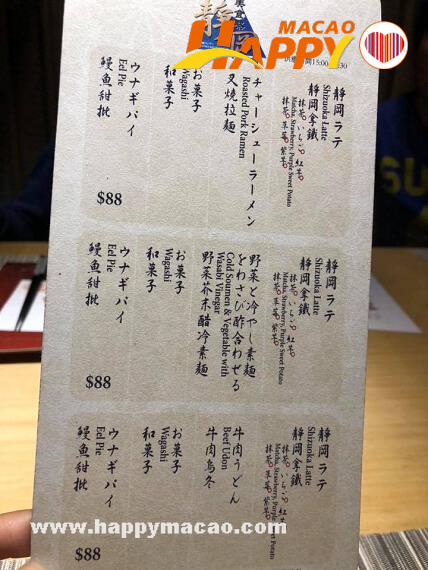 MACAO
HAPPY
靜岡
15:00
静岡ラテ
Shizuoka Latte
靜岡拿鐵
抹茶 いちご 紅芋
Matcha, Strawberry, Purple Sweet Potato
チャーシューラーメン
Roasted Pork Ramen
叉燒拉麵
お菓子
Wagashi
和菓子
ウナギパイ
Eel Pie
鰻魚甜批
$88
静岡ラテ
Shizuoka Latte
靜岡拿鐵
抹茶 いちご 紅芋
Matcha, Strawberry, Purple Sweet Potato
野菜と冷やし素麺
をわさび酢合わせる
Cold Soumen & Vegetable with
Wasabi Vinegar
野菜芥末醋冷素麵
お菓子
Wagashi
和菓子
ウナギパイ
Eel Pie
鰻魚甜批
$88
静岡ラテ
Shizuoka Latte
靜岡拿鐵
抹茶 いちご 紅芋
Matcha, Strawberry, Purple Sweet Potato
牛肉うどん
Beef Udon
牛肉烏冬
お菓子
Wagashi
和菓子
ウナギパイ
Eel Pie
鰻魚甜批
$88
www.happymacao.com